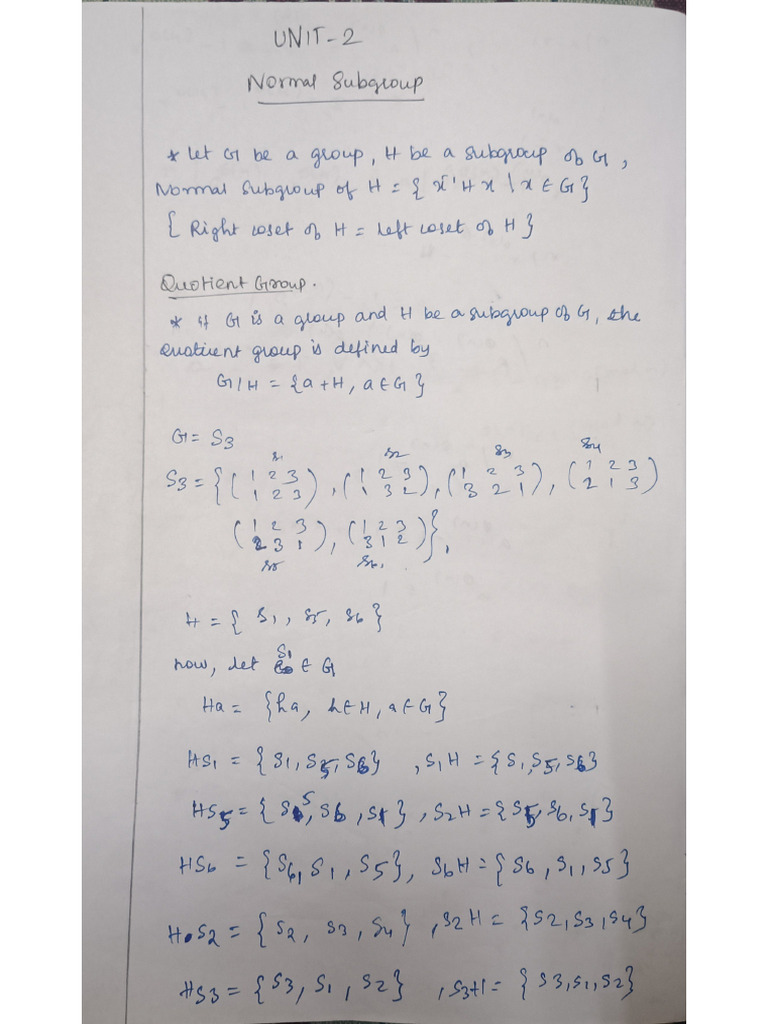 UNIT-2
Normal Subgroup
* Let G be a group, H be a subgroup of G,
Normal Subgroup of H = { x⁻¹Hx \ x ∈ G}
{ Right coset of H = Left coset of H }
Quotient Group.
* if G is a group and H be a subgroup of G, the
Quotient group is defined by
G/H = {a+H, a∈G}
G = S3
s1 s2 s3 s4
S3 = { ( 1 2 3 ), ( 1 2 3 ), ( 1 2 3 ), ( 1 2 3 )
1 2 3 1 3 2 3 2 1 2 1 3
( 1 2 3 ), ( 1 2 3 ) },
2 3 1 3 1 2
s5 s6
H = { S1, S5, S6 }
now, let S1 ∈ G
Ha = {ha, h∈H, a∈G}
HS1 = { S1, S5, S6} , S1H = {S1, S5, S6}
HS5 = { S5, S6, S1} , S2H = {S5, S6, S1}
HS6 = {S6, S1, S5}, S6H = {S6, S1, S5}
H.S2 = { S2, S3, S4} , S2H = {S2, S3, S4}
HS3 = {S3, S1, S2} , S3H = { S3, S1, S2}